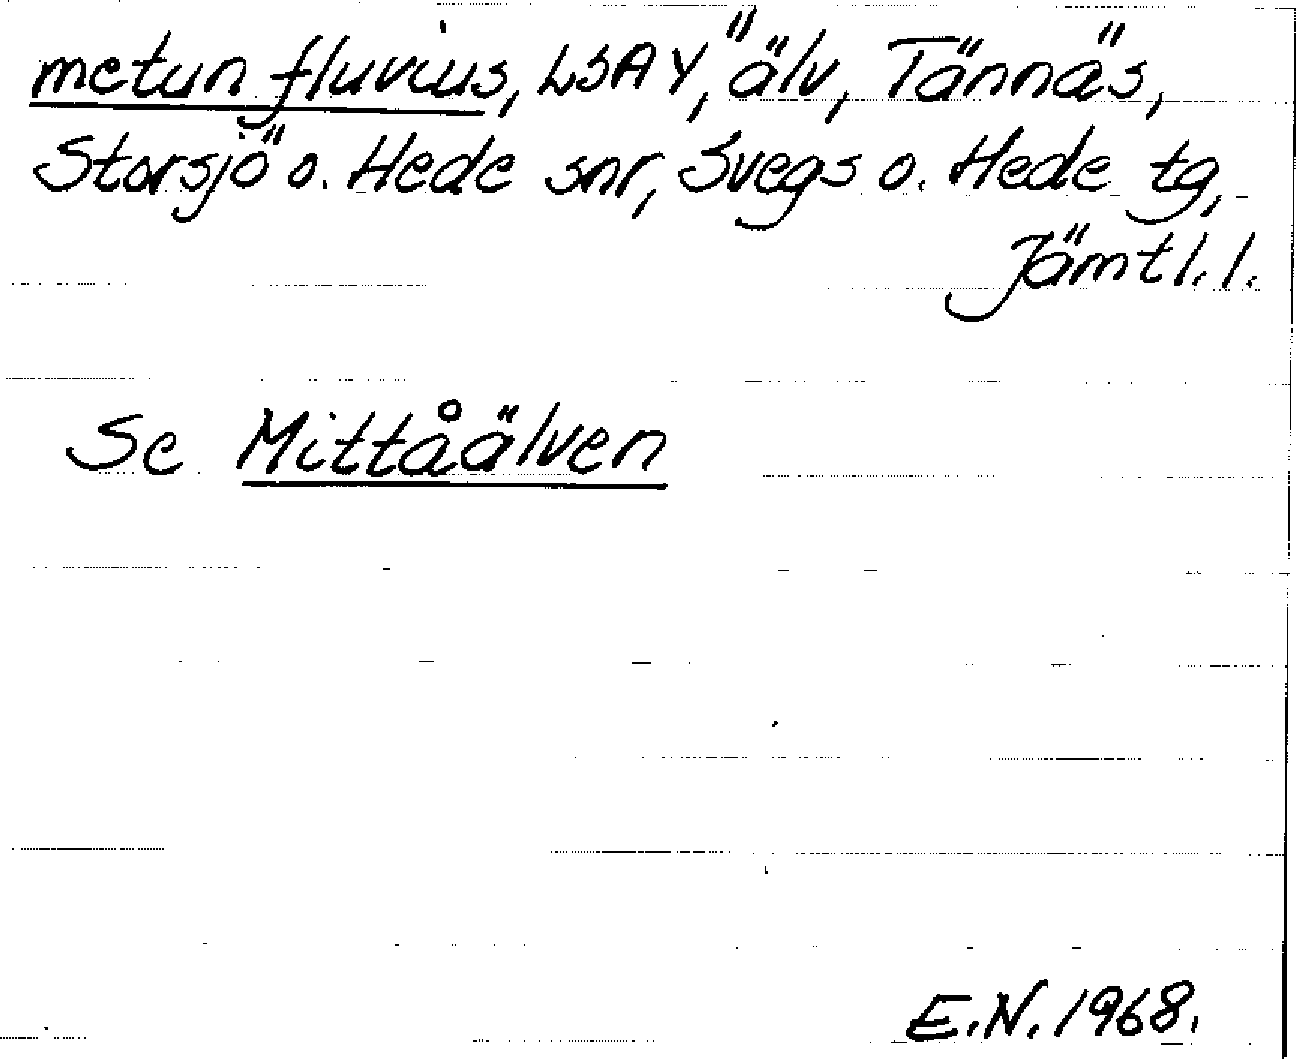 metun fluvius, LSA Y, älv, Tännäs,
Storsjö o. Hede snr, Svegs o. Hede tg,
Jämtl. l.
Se Mittåälven
E.N. 1968.